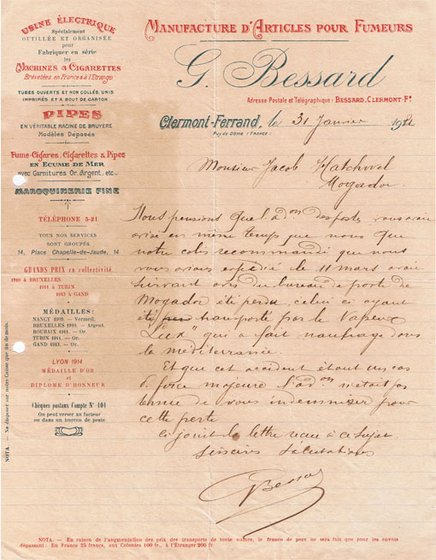 USINE ÉLECTRIQUE
Spécialement
OUTILLÉE ET ORGANISÉE
pour
Fabriquer en série
les
MACHINES A CIGARETTES
Brevetées en France & à l'Etranger
TUBES OUVERTS ET NON COLLÉS, UNIS
IMPRIMÉS ET A BOUT DE CARTON
PIPES
EN VÉRITABLE RACINE DE BRUYERE
Modèles Déposés
Fume-Cigares, Cigarettes & Pipes
EN ECUME DE MER
avec Garnitures Or, Argent, etc..
MAROQUINERIE FINE
TÉLÉPHONE 5-21
TOUS NOS SERVICES
SONT GROUPÉS
14, Place Chapelle-de-Jaude, 14
GRANDS PRIX en collectivité
1910 à BRUXELLES
1911 à TURIN
1913 à GAND
MÉDAILLES:
NANCY 1909. — Vermeil.
BRUXELLES 1910. — Argent.
ROUBAIX 1911. — Or.
TURIN 1911. — Or.
GAND 1913. — Or.
LYON 1914
MÉDAILLE D'OR
et
DIPLOME D'HONNEUR
Chèques postaux Compte N° 101
On peut verser au facteur
ou dans un bureau de poste
NOTA. — Ne disposer sur notre Caisse que fin de mois.
MANUFACTURE D'ARTICLES POUR FUMEURS
G. Bessard
Adresse Postale et Télégraphique: BESSARD, CLERMONT-Fd
Clermont-Ferrand, le 31 Janvier
PUY DE DÔME (FRANCE)
Monsieur Jacob
Mogador
Nous pensions que l'adon des postes vous avait
avisé en même temps que nous que
notre colis recommandé que nous
vous avions expédié le 11 mars
suivant avis du bureau de poste de
Mogador été perdu, celui ci ayant
été transporté par le Vapeur
"Lux" qui a fait naufrage dans
la méditerranée.
Et que cet accident étant un cas
de force majeure l'adon n'était pas
tenue de vous indemniser pour
cette perte
ci joint la lettre reçue à ce sujet
Sincères Salutations
Bessard
NOTA. — En raison de l'augmentation des prix des transports de toute nature, le franco de port ne sera fait que pour les envois
dépassant: En France 25 francs, aux Colonies 100 fr., à l'Etranger 200 fr.